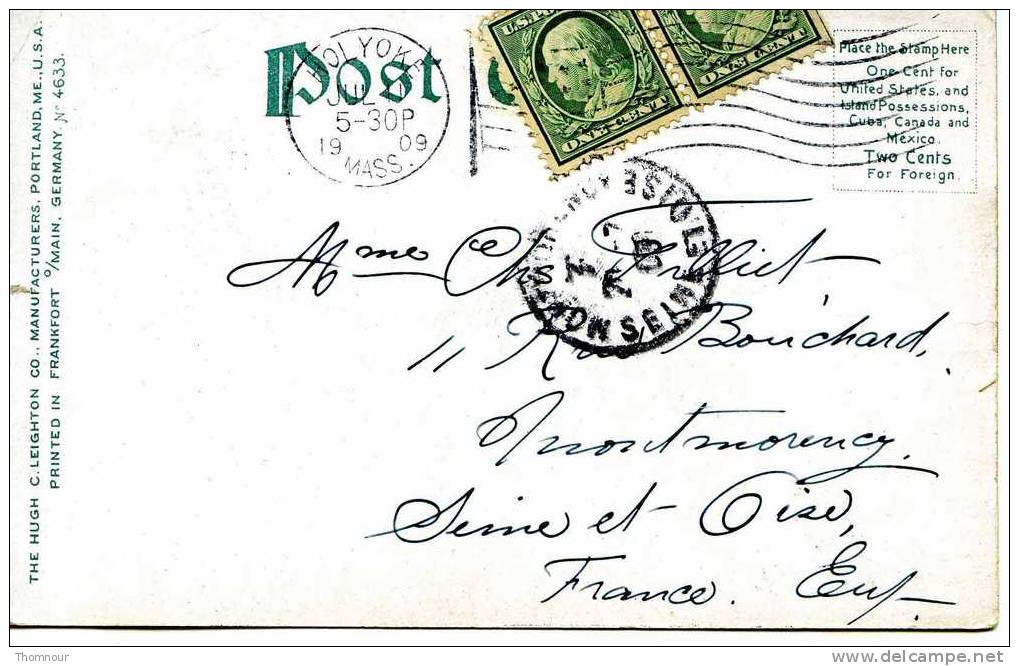 Post
HOLYOKE
JUL 11
5-30P
19 09
MASS.
U.S. PO
ONE CENT
ONE CENT
Place the Stamp Here
One Cent for
United States, and
Island Possessions,
Cuba, Canada and
Mexico.
Two Cents
For Foreign.
SEINE ET OISE
Mme Chs
11 Rue Bouchard,
Montmorency.
Seine et Oise,
France. Eur.
THE HUGH C. LEIGHTON CO., MANUFACTURERS, PORTLAND, ME., U.S.A.
PRINTED IN FRANKFORT O/MAIN, GERMANY, No 4633.
Thomnour
delcampe.net